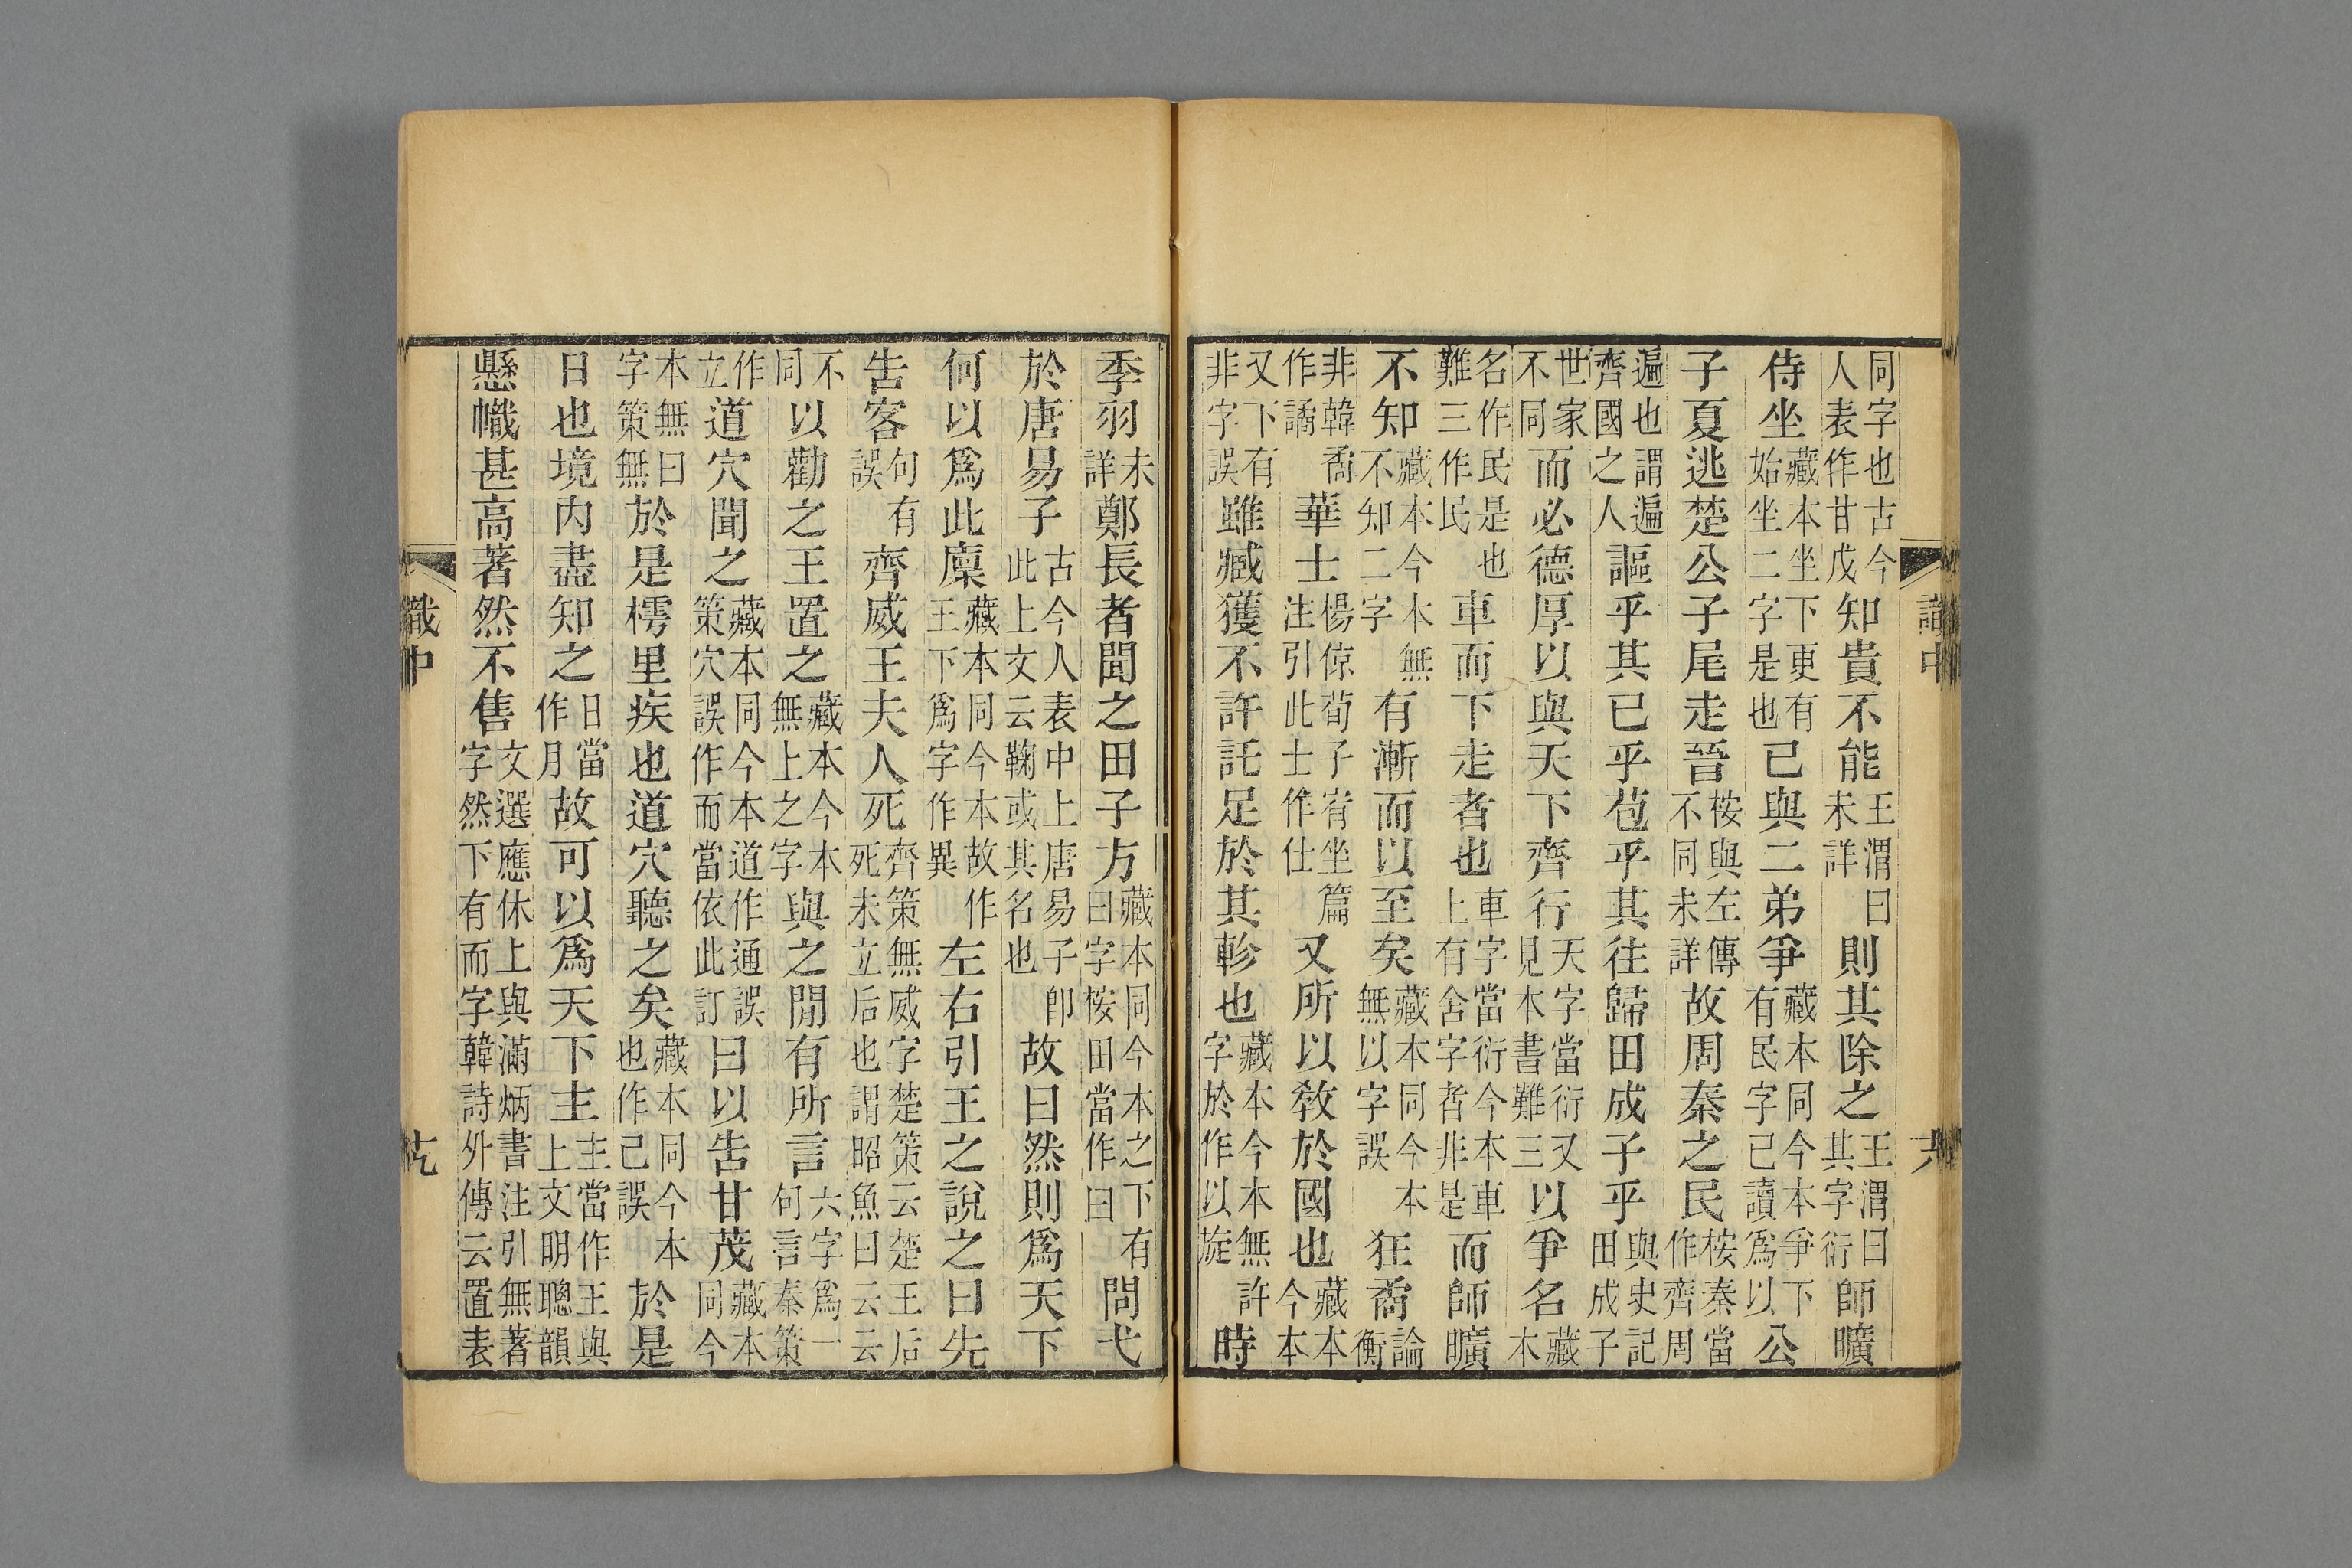 同字也古今人表作甘戊知貴不能王渭曰未詳則其除之王渭曰其字衍師曠
侍坐藏本坐下更有始坐二字是也已與二弟爭藏本同今本爭下有民字已讀爲以公
子夏逃楚公子尾走晉桉與左傳不同未詳故周秦之民桉秦當作齊周
遍也謂遍齊國之人謳乎其已乎苞乎其往歸田成子乎與史記田成子
世家不同而必德厚以與天下齊行天字當衍又見本書難三以爭名藏本
名作民是也難三作民車而下走者也車字當衍今本車上有舍字者非是而師曠
不知藏本今本無不知二字有漸而以至矣藏本同今本無以字誤狂矞論衡
非韓矞作譎華士楊倞荀子宥坐篇注引此士作仕又所以敎於國也藏本今本
又下有非字誤雖臧獲不許託足於其軫也藏本今本無許字於作以旋時
季羽未詳鄭長者聞之田子方藏本同今本之下有曰字桉田當作曰問弋
於唐易子古今人表中上唐易子卽此上文云鞠或其名也故曰然則爲天下
何以爲此廩藏本同今本故作王下爲字作異左右引王之說之曰先
告客句有誤齊威王夫人死齊策無威字楚策云楚王后死未立后也謂昭魚曰云云
不同以勸之王置之藏本今本無上之字與之閒有所言六字爲一句言秦策
作立道穴聞之藏本同今本道作通誤策穴誤作而當依此訂曰以告甘茂藏本同今
本無曰字策無於是樗里疾也道穴聽之矣藏本同今本也作己誤於是
日也境內盡知之日當作月故可以爲天下主主當作王與上文明聰韻
懸幟甚高著然不售文選應休上與滿炳書注引無著字然下有而字韓詩外傳云置表